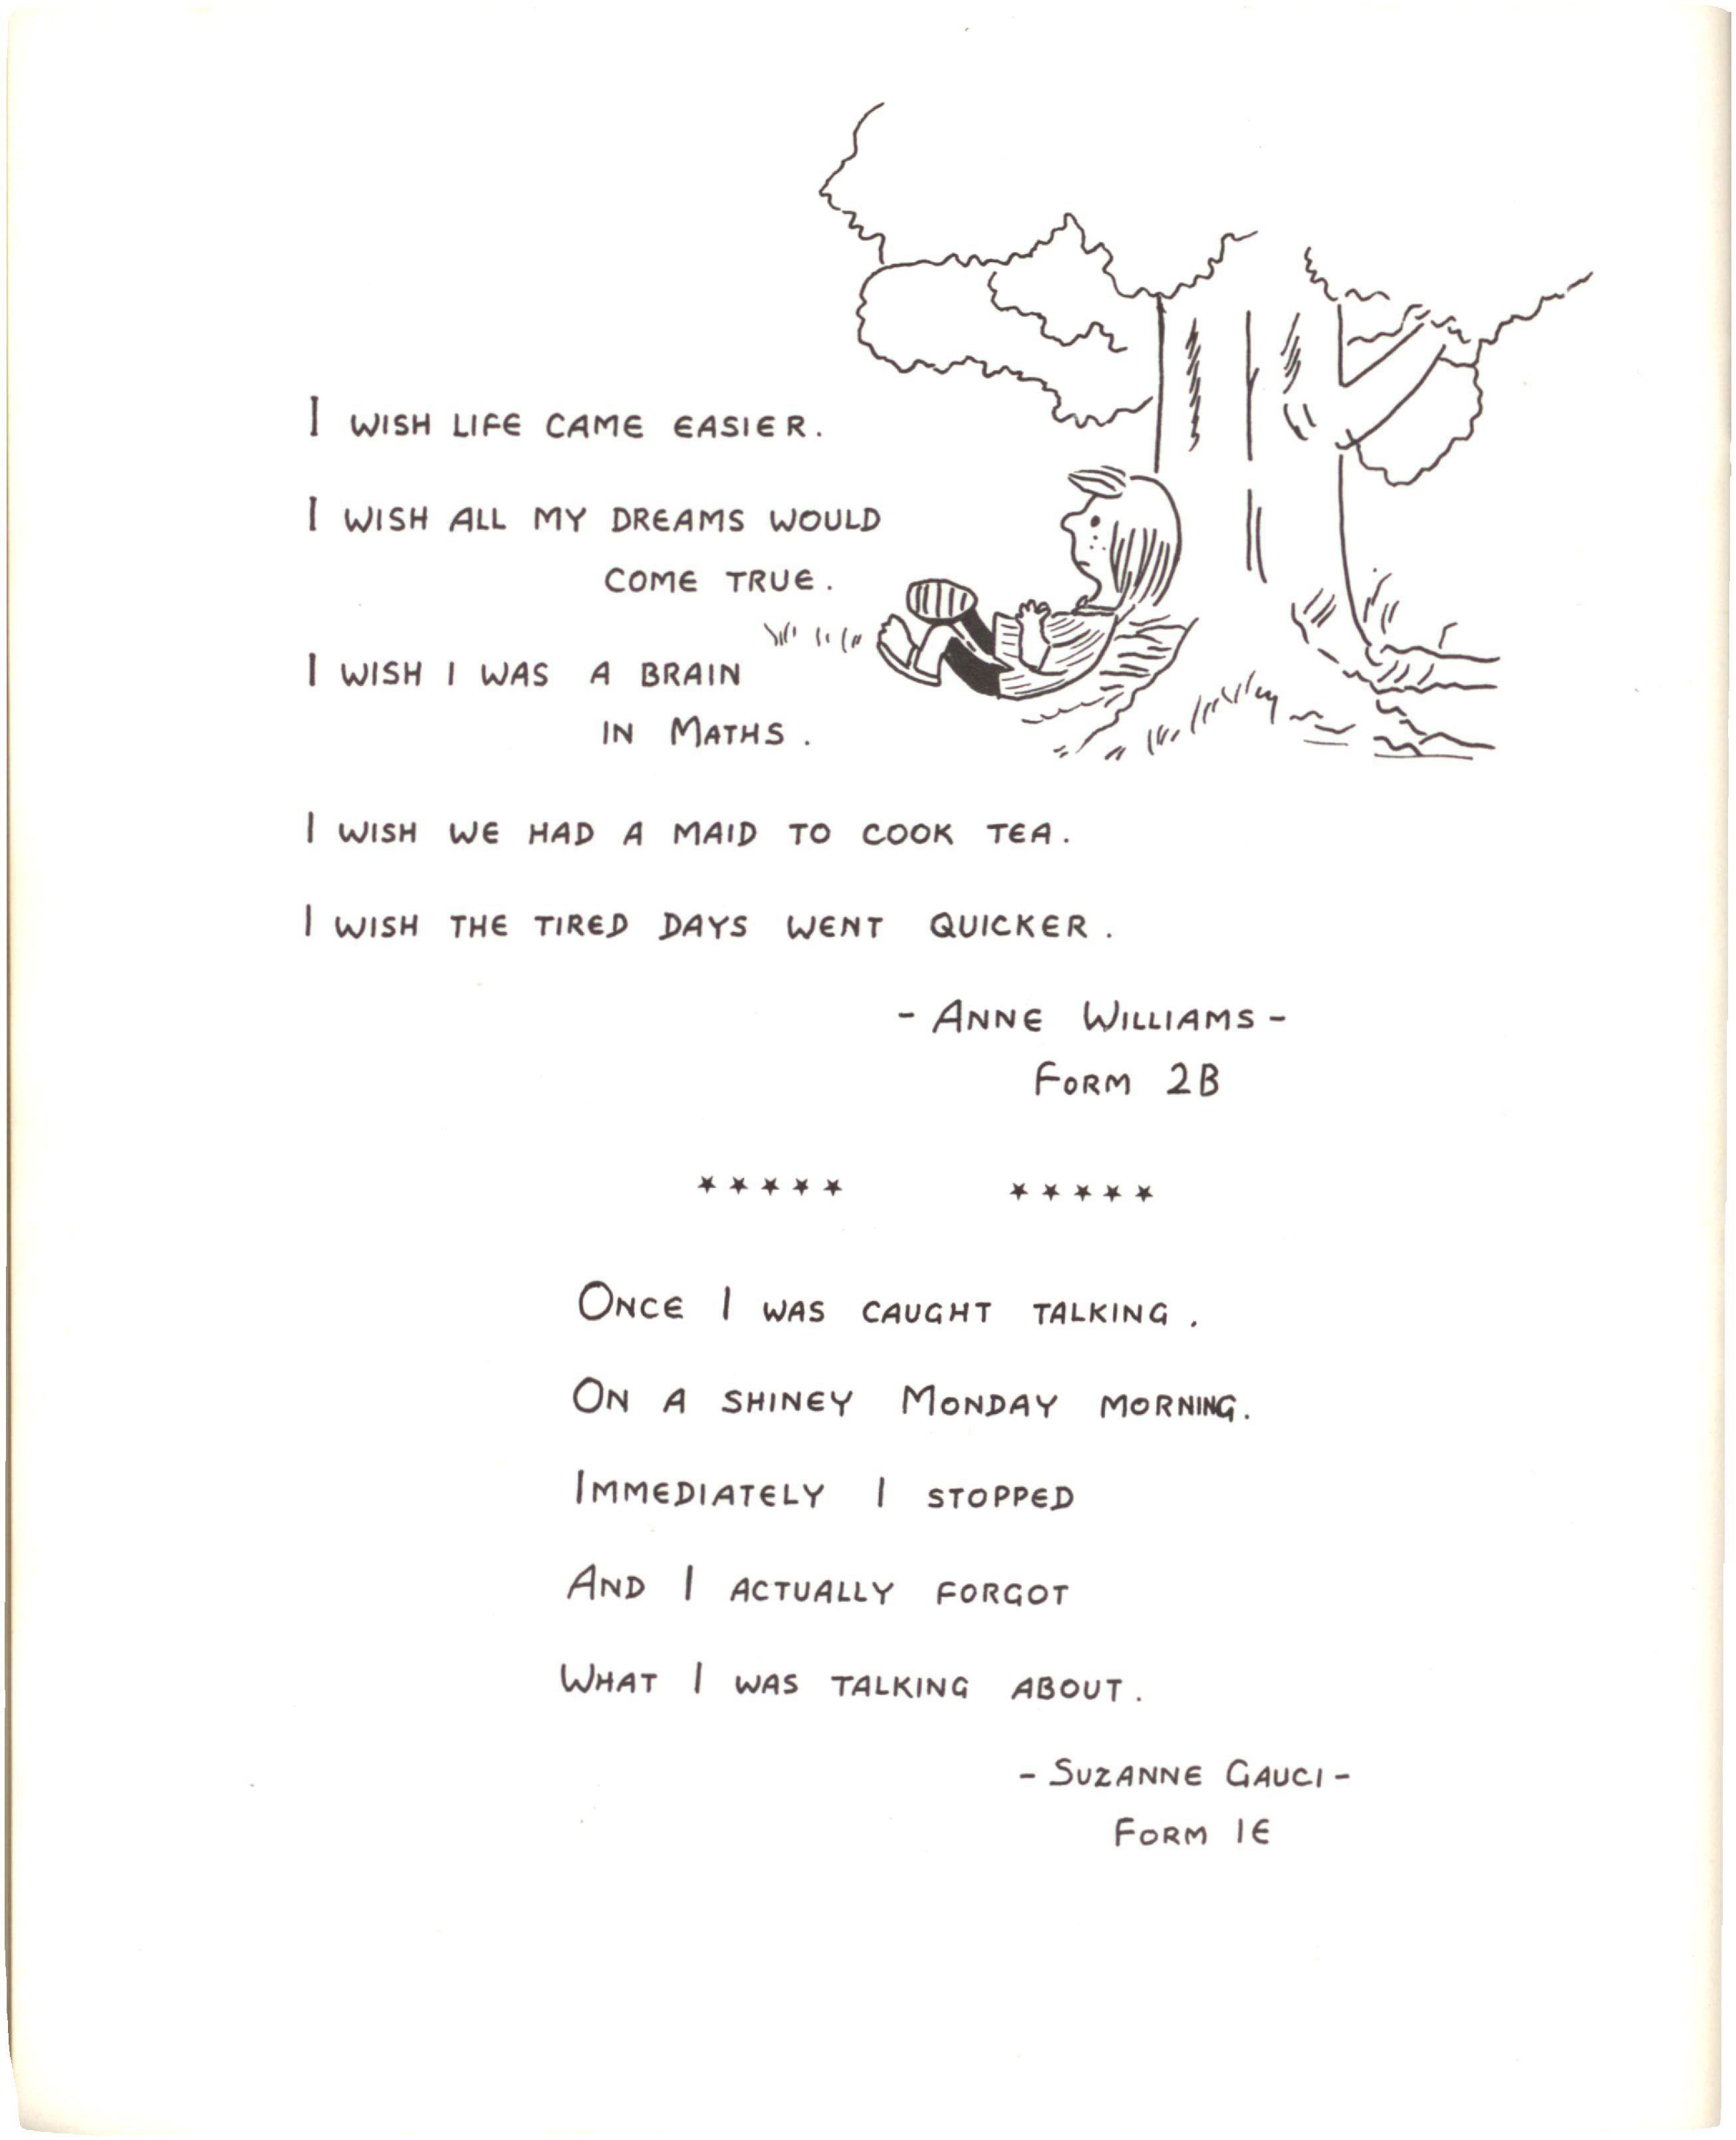 I WISH LIFE CAME EASIER.
I WISH ALL MY DREAMS WOULD
COME TRUE.
I WISH I WAS A BRAIN
IN MATHS.
I WISH WE HAD A MAID TO COOK TEA.
I WISH THE TIRED DAYS WENT QUICKER.
- ANNE WILLIAMS -
FORM 2B
***** *****
ONCE I WAS CAUGHT TALKING.
ON A SHINEY MONDAY MORNING.
IMMEDIATELY I STOPPED
AND I ACTUALLY FORGOT
WHAT I WAS TALKING ABOUT.
- SUZANNE GAUCI -
FORM 1E